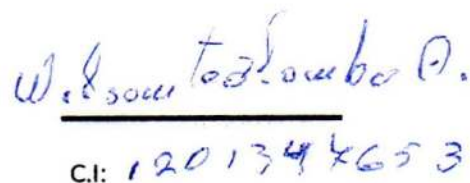 Wilsom Toalombo A.
C.I: 1201347653